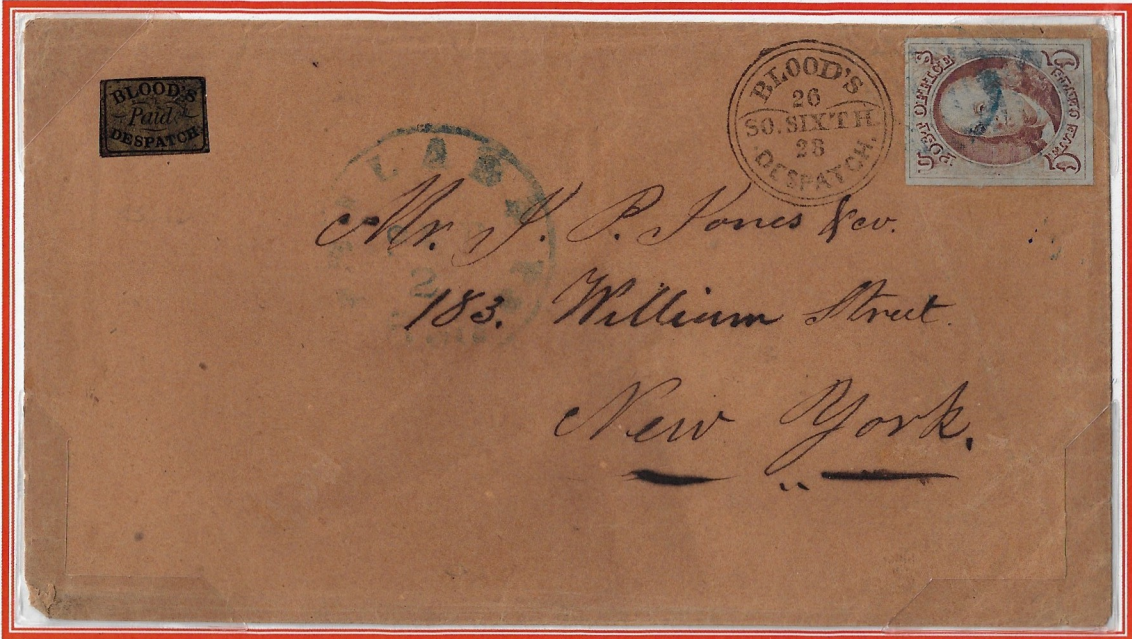 BLOOD'S
Paid
DESPATCH
BLOOD'S
26
SO. SIXTH.
28
DESPATCH.
POST OFFICE
5
5
Mr. J. P. Jones & co.
183. William Street.
New York.